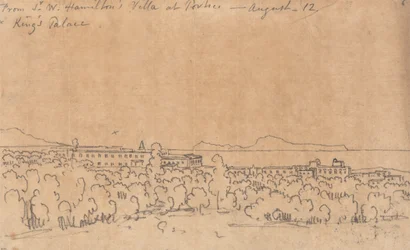 From Sr. W. Hamilton's Villa at Portici — August. 12
King's Palace